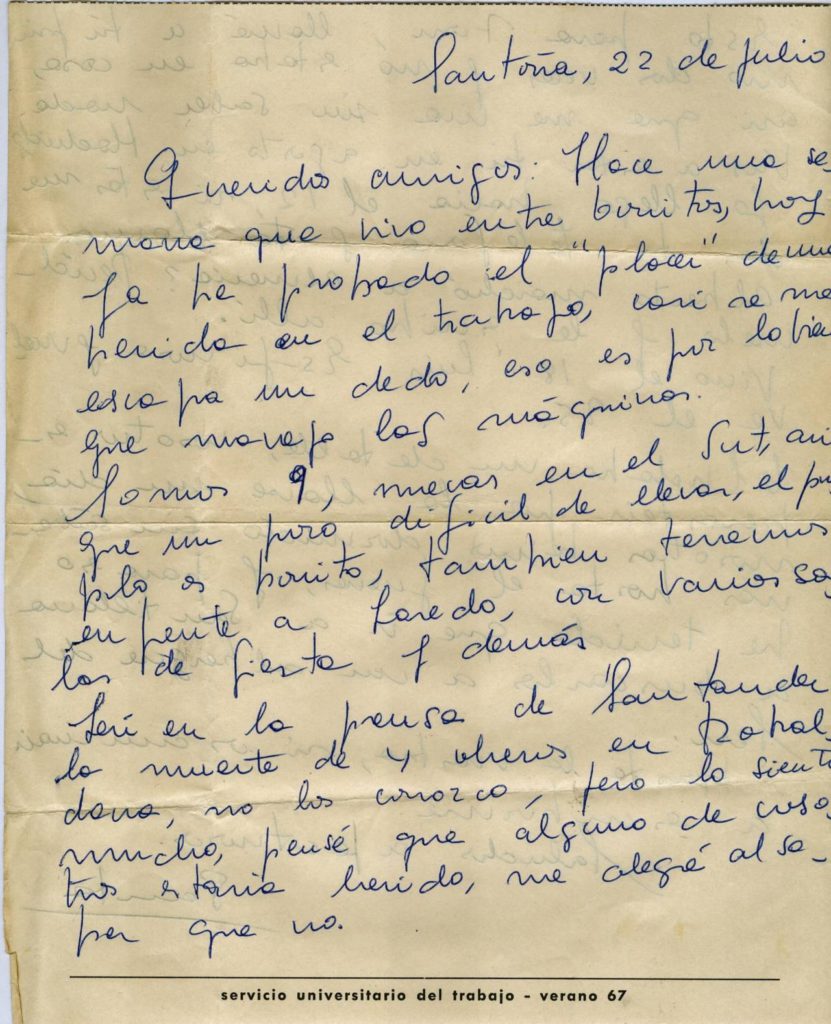 Santoña, 22 de Julio
Queridos amigos: Hace una se-
mana que vivo entre bonitos, hoy
ya he probado el "placer" de una
herida en el trabajo, casi se me
escapa un dedo, eso es por lo bien
que manejo las máquinas.
Somos 9, nuevas en el Sut, asi
que un poco dificil de llevar, el pue
blo es bonito, tambien tenemos
en frente a Laredo, con varias sa
las de fiesta y demás
Leí en la prensa de Santander
la muerte de 4 obreros en
dana, no los conozco, pero lo siento
mucho, pensé que alguno de voso
tros estaria herido, me alegré al sa-
ber que no.
servicio universitario del trabajo - verano 67